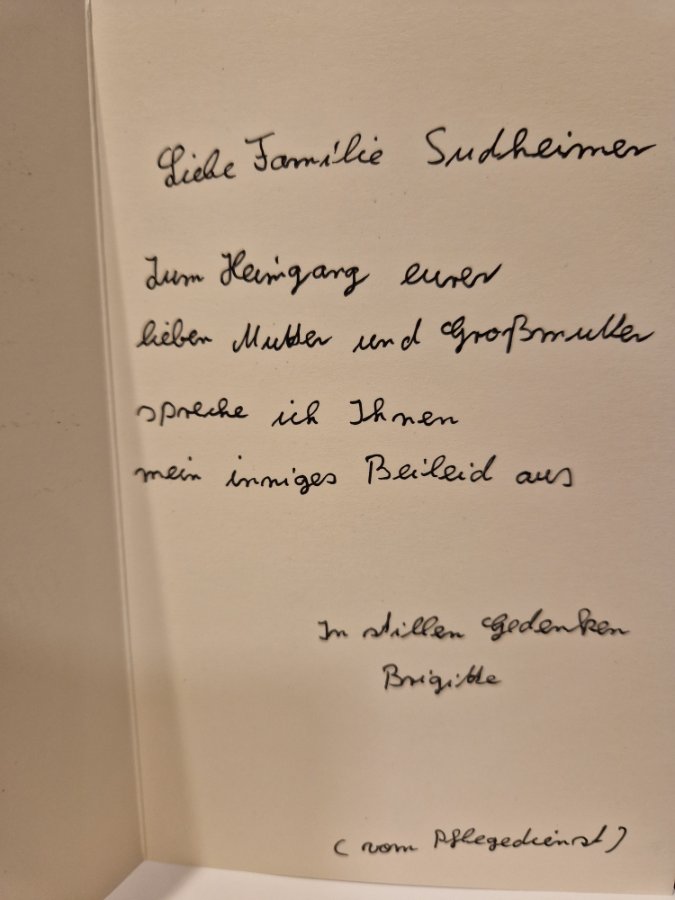 Liebe Familie Sudheimer
Zum Heimgang eurer
lieben Mutter und Großmutter
spreche ich Ihnen
mein inniges Beileid aus
In stillen Gedenken
Brigitte
(vom Pflegedienst)